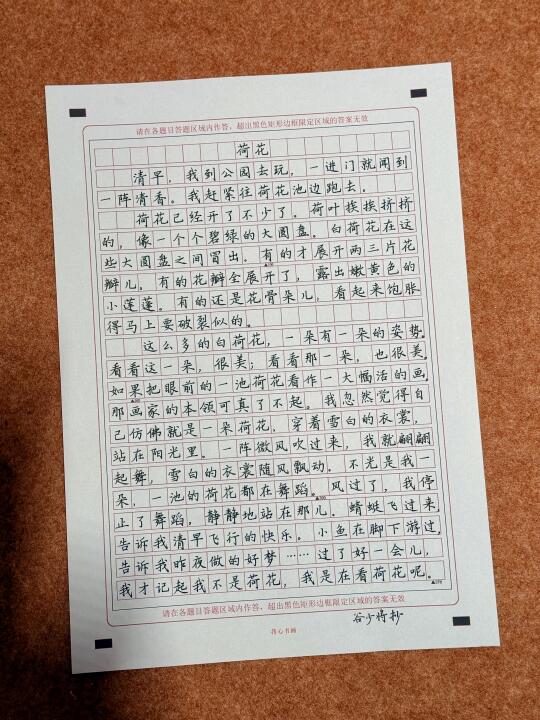 请在各题目答题区域内作答，超出黑色矩形边框限定区域的答案无效
荷花
清早，我到公园去玩，一进门就闻到
一阵清香。我赶紧往荷花池边跑去。
荷花已经开了不少了。荷叶挨挨挤挤
的，像一个个碧绿的大圆盘。白荷花在这
些大圆盘之间冒出。有的才展开两三片花
瓣儿，有的花瓣全展开了，露出嫩黄色的
小莲蓬。有的还是花骨朵儿，看起来饱胀
得马上要破裂似的。
这么多的白荷花，一朵有一朵的姿势。
看看这一朵，很美；看看那一朵，也很美。
如果把眼前的一池荷花看作一大幅活的画，
那画家的本领可真了不起。我忽然觉得自
己仿佛就是一朵荷花，穿着雪白的衣裳，
站在阳光里。一阵微风吹过来，我就翩翩
起舞，雪白的衣裳随风飘动。不光是我一
朵，一池的荷花都在舞蹈。风过了，我停
止了舞蹈，静静地站在那儿。蜻蜓飞过来，
告诉我清早飞行的快乐。小鱼在脚下游过，
告诉我昨夜做的好梦……过了好一会儿，
我才记起我不是荷花，我是在看荷花呢。
请在各题目答题区域内作答，超出黑色矩形边框限定区域的答案无效